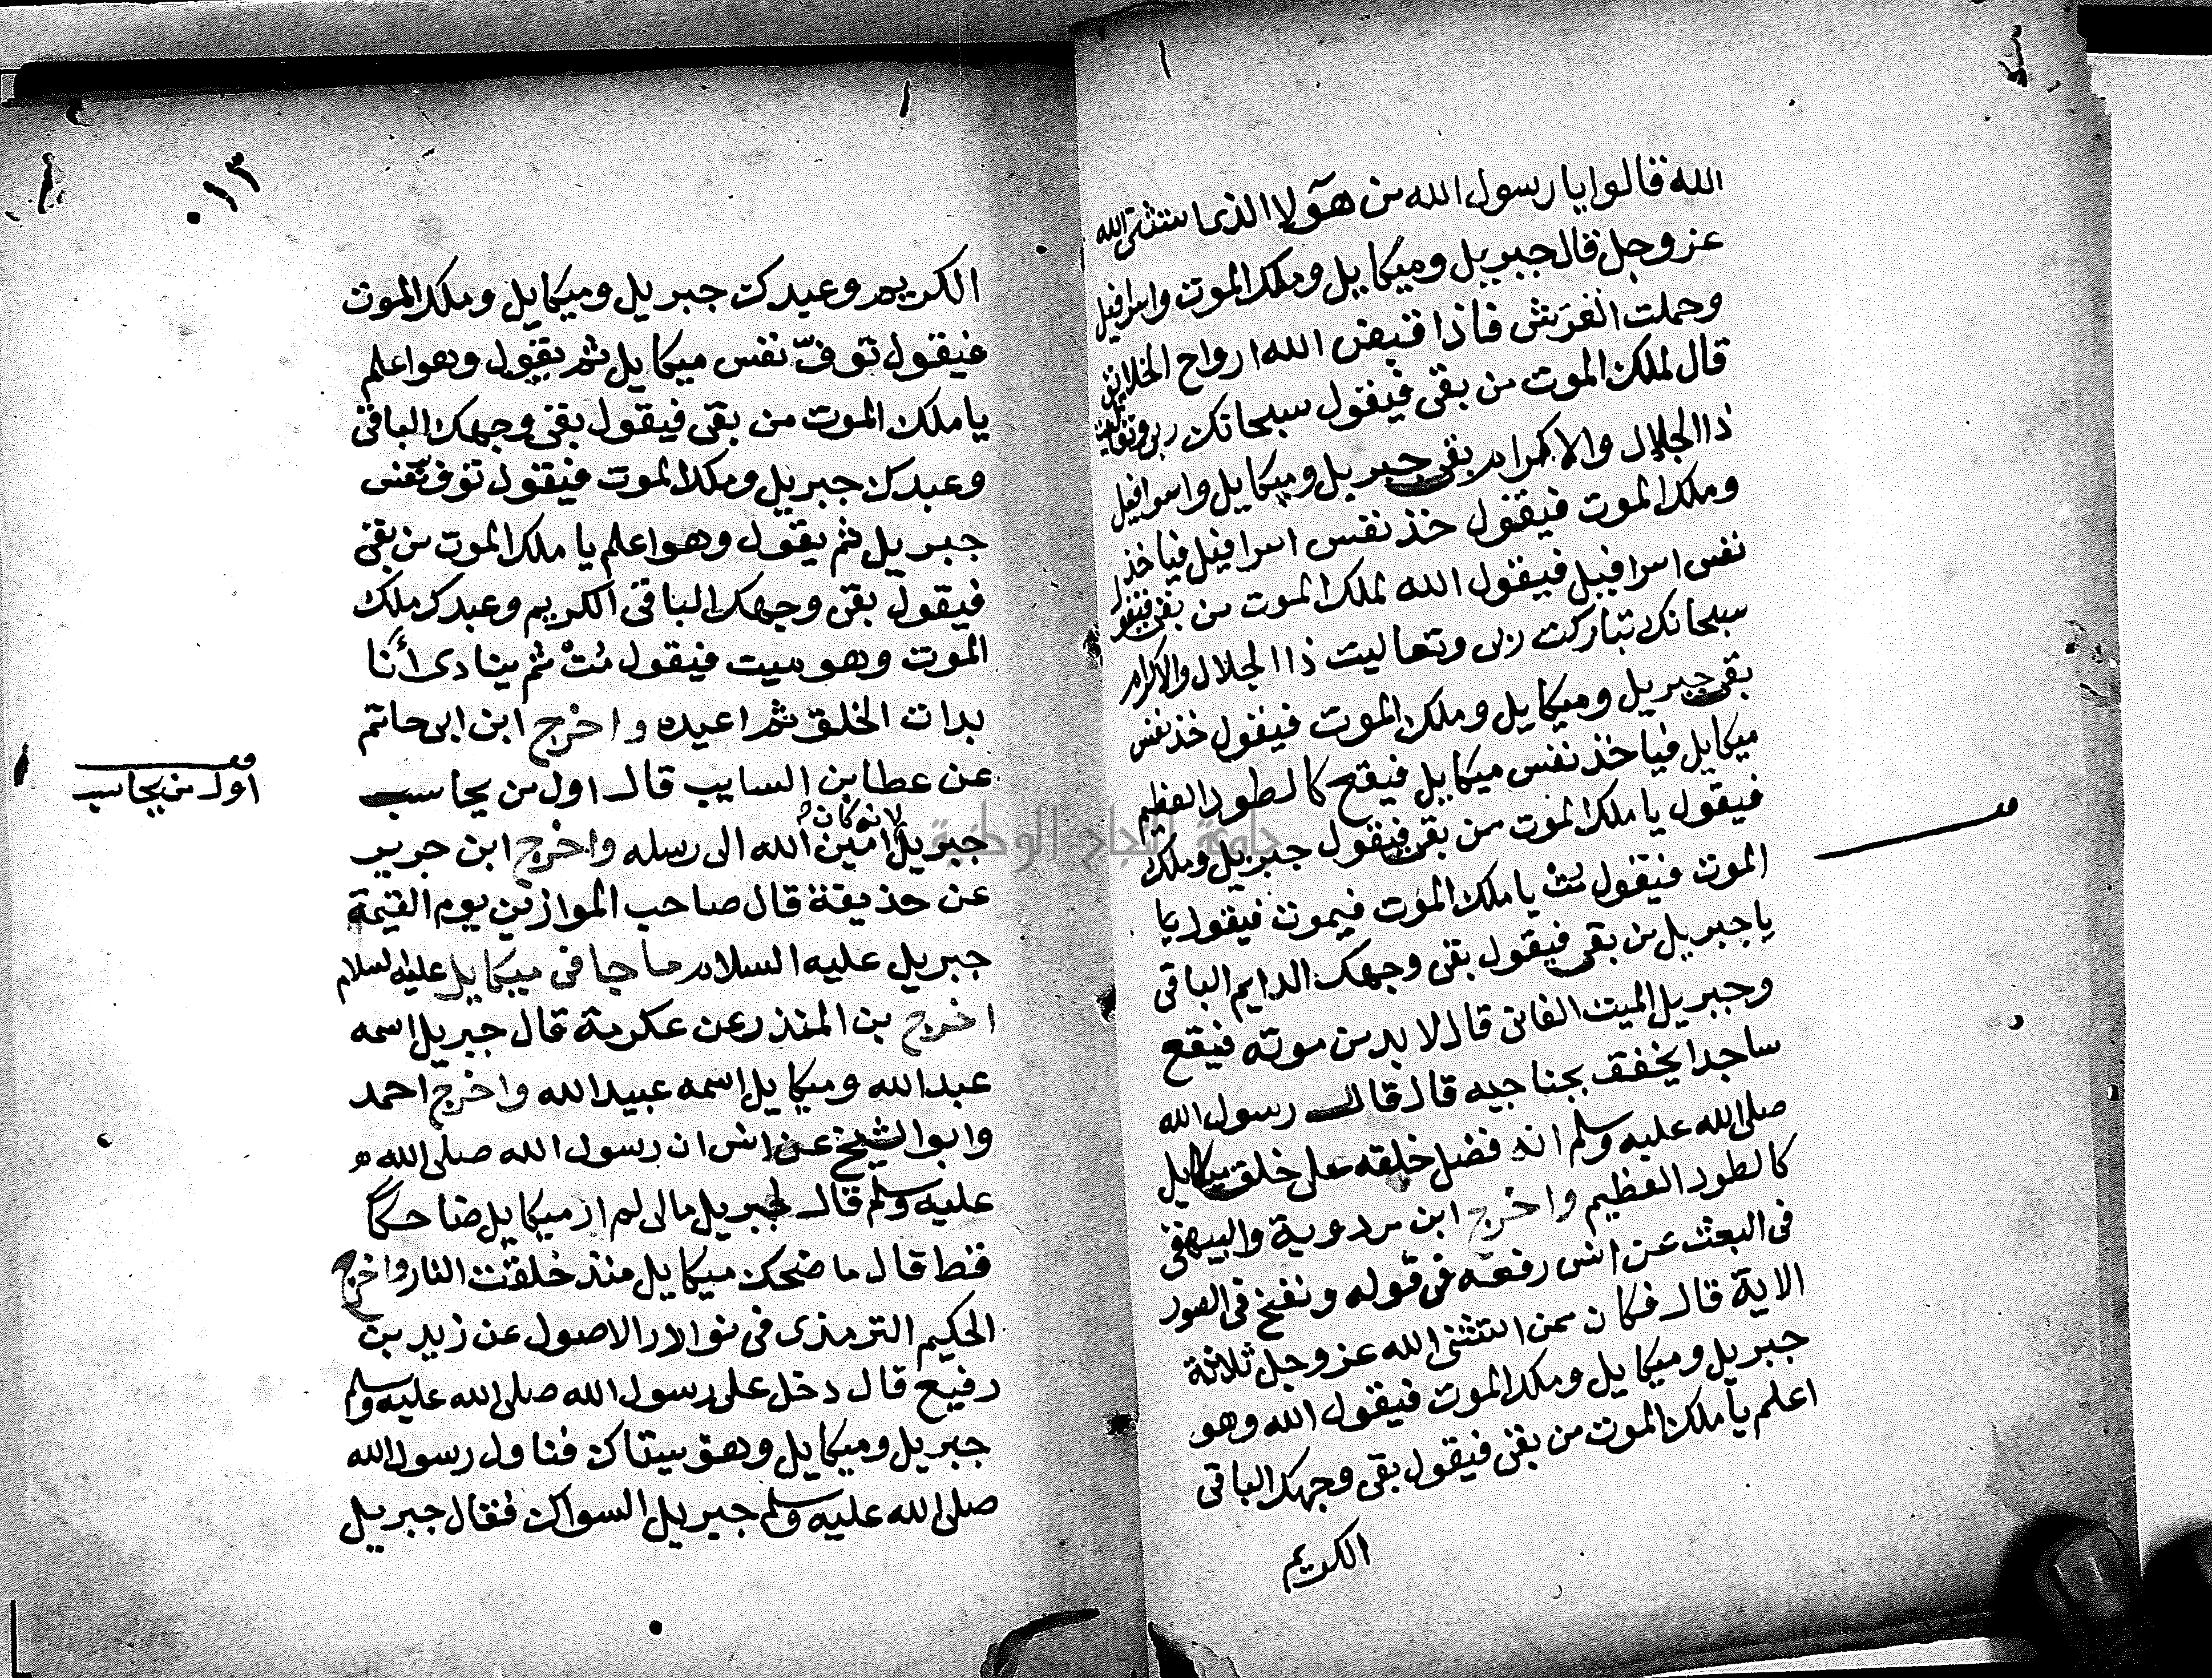 الله قالوا يا رسول الله من هؤلا الذي استثنى الله
عز وجل قال جبريل وميكاييل وملك الموت واسرافيل
وحملت العرش فاذا قبض الله ارواح الخلايق
قال لملك الموت من بقى فيقول سبحانك ربي وتعاليت
ذا الجلال والاكرام بقى جبريل وميكاييل واسرافيل
وملك الموت فيقول خذ نفس اسرافيل فياخذ
نفس اسرافيل فيقول الله لملك الموت من بقى فيقول
سبحانك تباركت ربي وتعاليت ذا الجلال والاكرام
بقى جبريل وميكاييل وملك الموت فيقول خذ نفس
ميكاييل فياخذ نفس ميكاييل فيقع كالطود العظيم
فيقول يا ملك الموت من بقى فيقول جبريل وملك
الموت فيقول مت يا ملك الموت فيموت فيقول يا
يا جبريل من بقى فيقول بقى وجهك الدايم الباقى
وجبريل الميت الفانى قال لا بد من موته فيقع
ساجدا يخفق بجناحيه قال قال رسول الله
صلى الله عليه وسلم انه فضل خلقه على خلق ميكاييل
كالطود العظيم واخرج ابن مردوية والبيهقى
فى البعث عن انس رفعه فى قوله ونفخ فى الصور
الاية قال فكان ممن استثنى الله عز وجل ثلاثة
جبريل وميكاييل وملك الموت فيقول الله وهو
اعلم يا ملك الموت من بقى فيقول بقى وجهك الباقى
الكريم
١٣
الكريم وعبدك جبريل وميكاييل وملك الموت
فيقول توفّ نفس ميكاييل ثم يقول وهو اعلم
يا ملك الموت من بقى فيقول بقى وجهك الباقى
وعبدك جبريل وملك الموت فيقول توف نفس
جبريل ثم يقول وهو اعلم يا ملك الموت من بقى
فيقول بقى وجهك الباقى الكريم وعبدك ملك
الموت وهو ميت فيقول مُتْ ثم ينادى أنا
بدات الخلق ثم اعيده واخرج ابن ابى حاتم
عن عطا بن السايب قال اول من يحاسب
جبريل لانه كان امين الله الى رسله واخرج ابن جرير
عن حذيفة قال صاحب الموازين يوم القيمة
جبريل عليه السلام ما جا فى ميكاييل عليه السلام
اخرج بن المنذر عن عكرمة قال جبريل اسمه
عبد الله وميكاييل اسمه عبيد الله واخرج احمد
وابو الشيخ عن انس ان رسول الله صلى الله
عليه وسلم قال لجبريل مالى لم ار ميكاييل ضاحكا
قط قال ما ضحك ميكاييل منذ خلقت النار واخرج
الحكيم الترمذى فى نوادر الاصول عن زيد بن
رفيع قال دخل على رسول الله صلى الله عليه وسلم
جبريل وميكاييل وهو يستاك فناول رسول الله
صلى الله عليه وسلم جبريل السواك فقال جبريل
اول من يحاسب
جامعة النجاح الوطنية